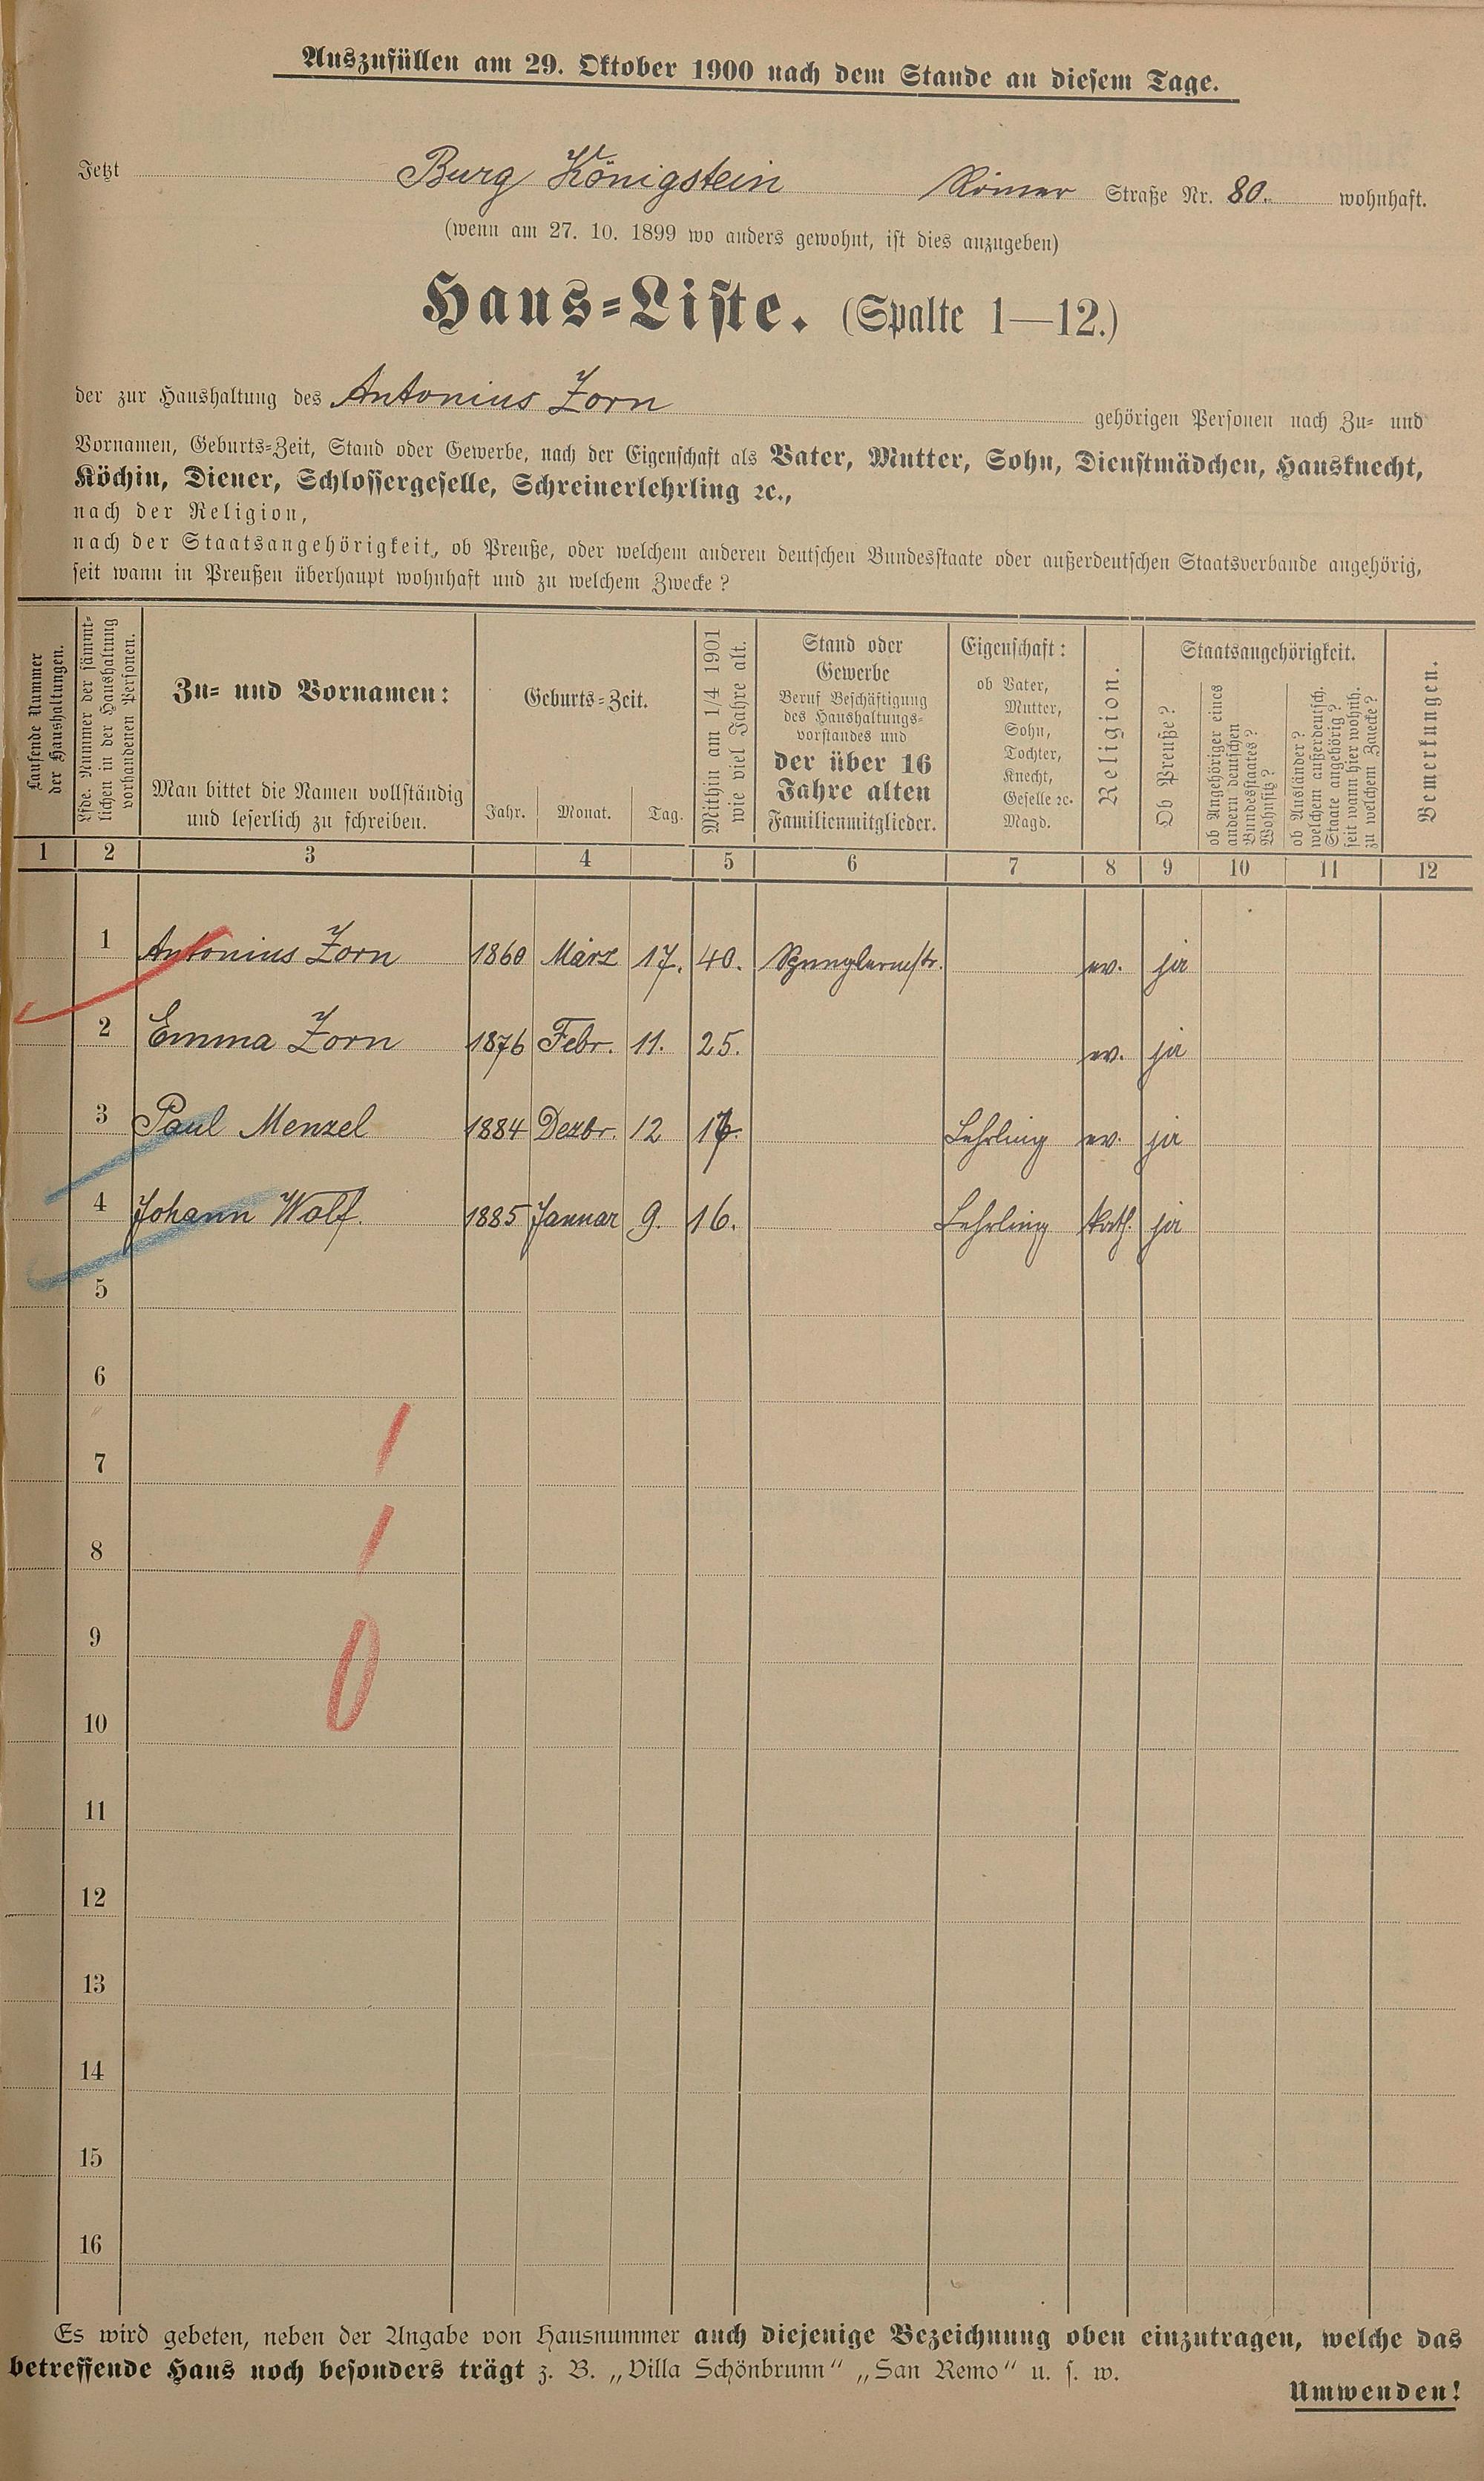 Auszufüllen am 29. Oktober 1900 nach dem Stande an diesem Tage.
Jetzt Burg Königstein Römer Straße Nr. 80. wohnhaft.
(wenn am 27. 10. 1899 wo anders gewohnt, ist dies anzugeben)
Haus-Liste. (Spalte 1—12.)
der zur Haushaltung des Antonius Zorn gehörigen Personen nach Zu- und
Vornamen, Geburts-Zeit, Stand oder Gewerbe, nach der Eigenschaft als Vater, Mutter, Sohn, Dienstmädchen, Hausknecht,
Köchin, Diener, Schlossergeselle, Schreinerlehrling ꝛc.,
nach der Religion,
nach der Staatsangehörigkeit, ob Preuße, oder welchem anderen deutschen Bundesstaate oder außerdeutschen Staatsverbande angehörig,
seit wann in Preußen überhaupt wohnhaft und zu welchem Zwecke?
Laufende Nummer
der Haushaltungen.
Lfde. Nummer der sämmt-
lichen in der Haushaltung
vorhandenen Personen.
Zu- und Vornamen:
Man bittet die Namen vollständig
und leserlich zu schreiben.
Geburts-Zeit.
Jahr. Monat. Tag.
Mithin am 1/4 1901
wie viel Jahre alt.
Stand oder
Gewerbe
Beruf Beschäftigung
des Haushaltungs-
vorstandes und
der über 16
Jahre alten
Familienmitglieder.
Eigenschaft:
ob Vater,
Mutter,
Sohn,
Tochter,
Knecht,
Geselle ꝛc.
Magd.
Religion.
Staatsangehörigkeit.
Ob Preuße?
ob Angehöriger eines
andern deutschen
Bundesstaates?
Wohnsitz?
ob Ausländer?
welchem außerdeutsch.
Staate angehörig?
seit wann hier wohnh.
zu welchem Zwecke?
Bemerkungen.
1 2 3 4 5 6 7 8 9 10 11 12
1 Antonius Zorn 1860 März 17. 40. Spenglermstr. ev. ja
2 Emma Zorn 1876 Febr. 11. 25. ev. ja
3 Paul Menzel 1884 Dezbr. 12 16. Lehrling ev. ja
4 Johann Wolf. 1885 Januar 9. 16. Lehrling kath. ja
5
6
7
8
9
10
11
12
13
14
15
16
Es wird gebeten, neben der Angabe von Hausnummer auch diejenige Bezeichnung oben einzutragen, welche das
betreffende Haus noch besonders trägt z. B. „Villa Schönbrunn“ „San Remo“ u. s. w.
Umwenden!